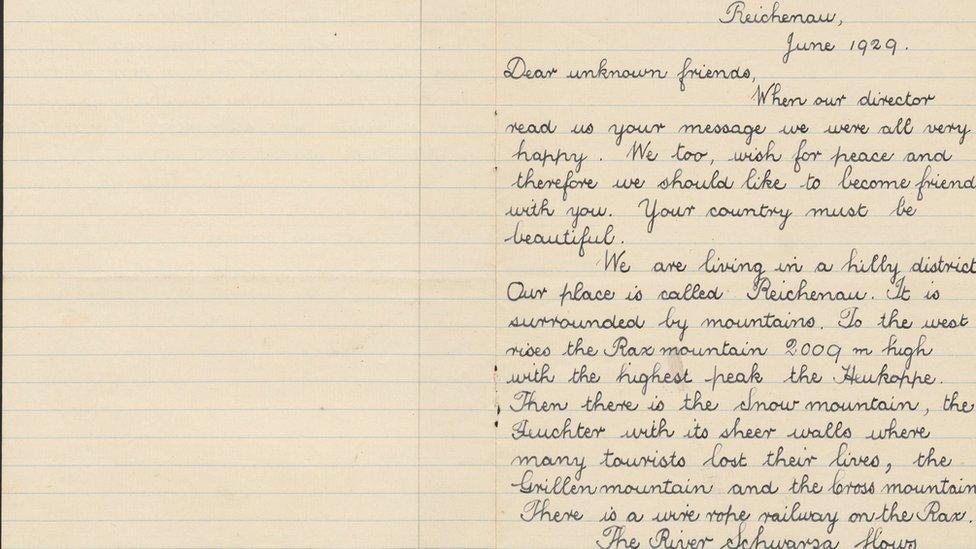 Reichenau,
June 1929.
Dear unknown friends,
When our director
read us your message we were all very
happy. We too, wish for peace and
therefore we should like to become friend
with you. Your country must be
beautiful.
We are living in a hilly district
Our place is called Reichenau. It is
surrounded by mountains. To the west
rises the Rax mountain 2009 m high
with the highest peak the Heukoppe.
Then there is the Snow mountain, the
Feuchter with its sheer walls where
many tourists lost their lives, the
Grillenmountain and the Cross mountain
There is a wire rope railway on the Rax.
The River Schwarza flows